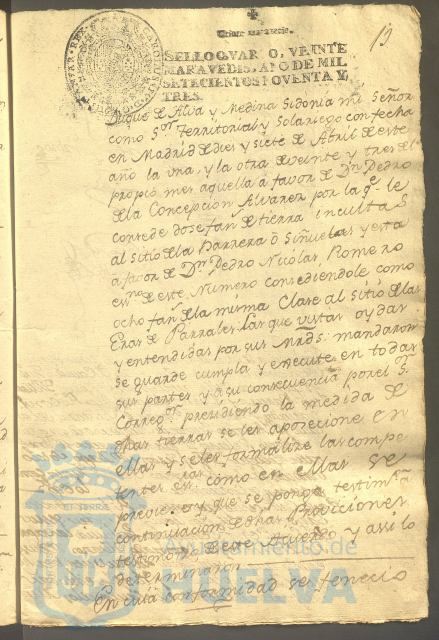 19
SELLO QVARTO, VEINTE
MARAVEDIS, AÑO DE MIL
SETECIENTOS NOVENTA Y
TRES.
Duque de Alva y Medina Sidonia mi Señor
como Sor Territorial y Solariego con fecha
en Madrid diez y siete de Abril de este
año la una, y la otra de veinte y tres del
propio mes aquella a favor de Dn Pedro
de la Concepcion Alvarez por la qe le
concede dose fan de tierra inculta
al sitio de la Barrera ò Siñuelas y esta
a favor de Dn Pedro Nicolas Romero
esno de este Numero consediendole como
ocho fans de la misma Clase al sitio de las
Eras de Parrales las que vistas oydas
y entendidas por sus mrds mandaron
se guarde cumpla y execute en todas
sus partes y a su consecuencia por el Sr
Corregor presidiendo la medida de
dhas tierras se les aposecione en
ellas y se les formalize las compe
tentes esras como en ellas se
previene y que se ponga testimo a
continuacion de dhas Proviciones
testimo de este Acuerdo y assi lo
determinaron
En cuia conformidad se fenecio
Ayuntamiento de
HUELVA